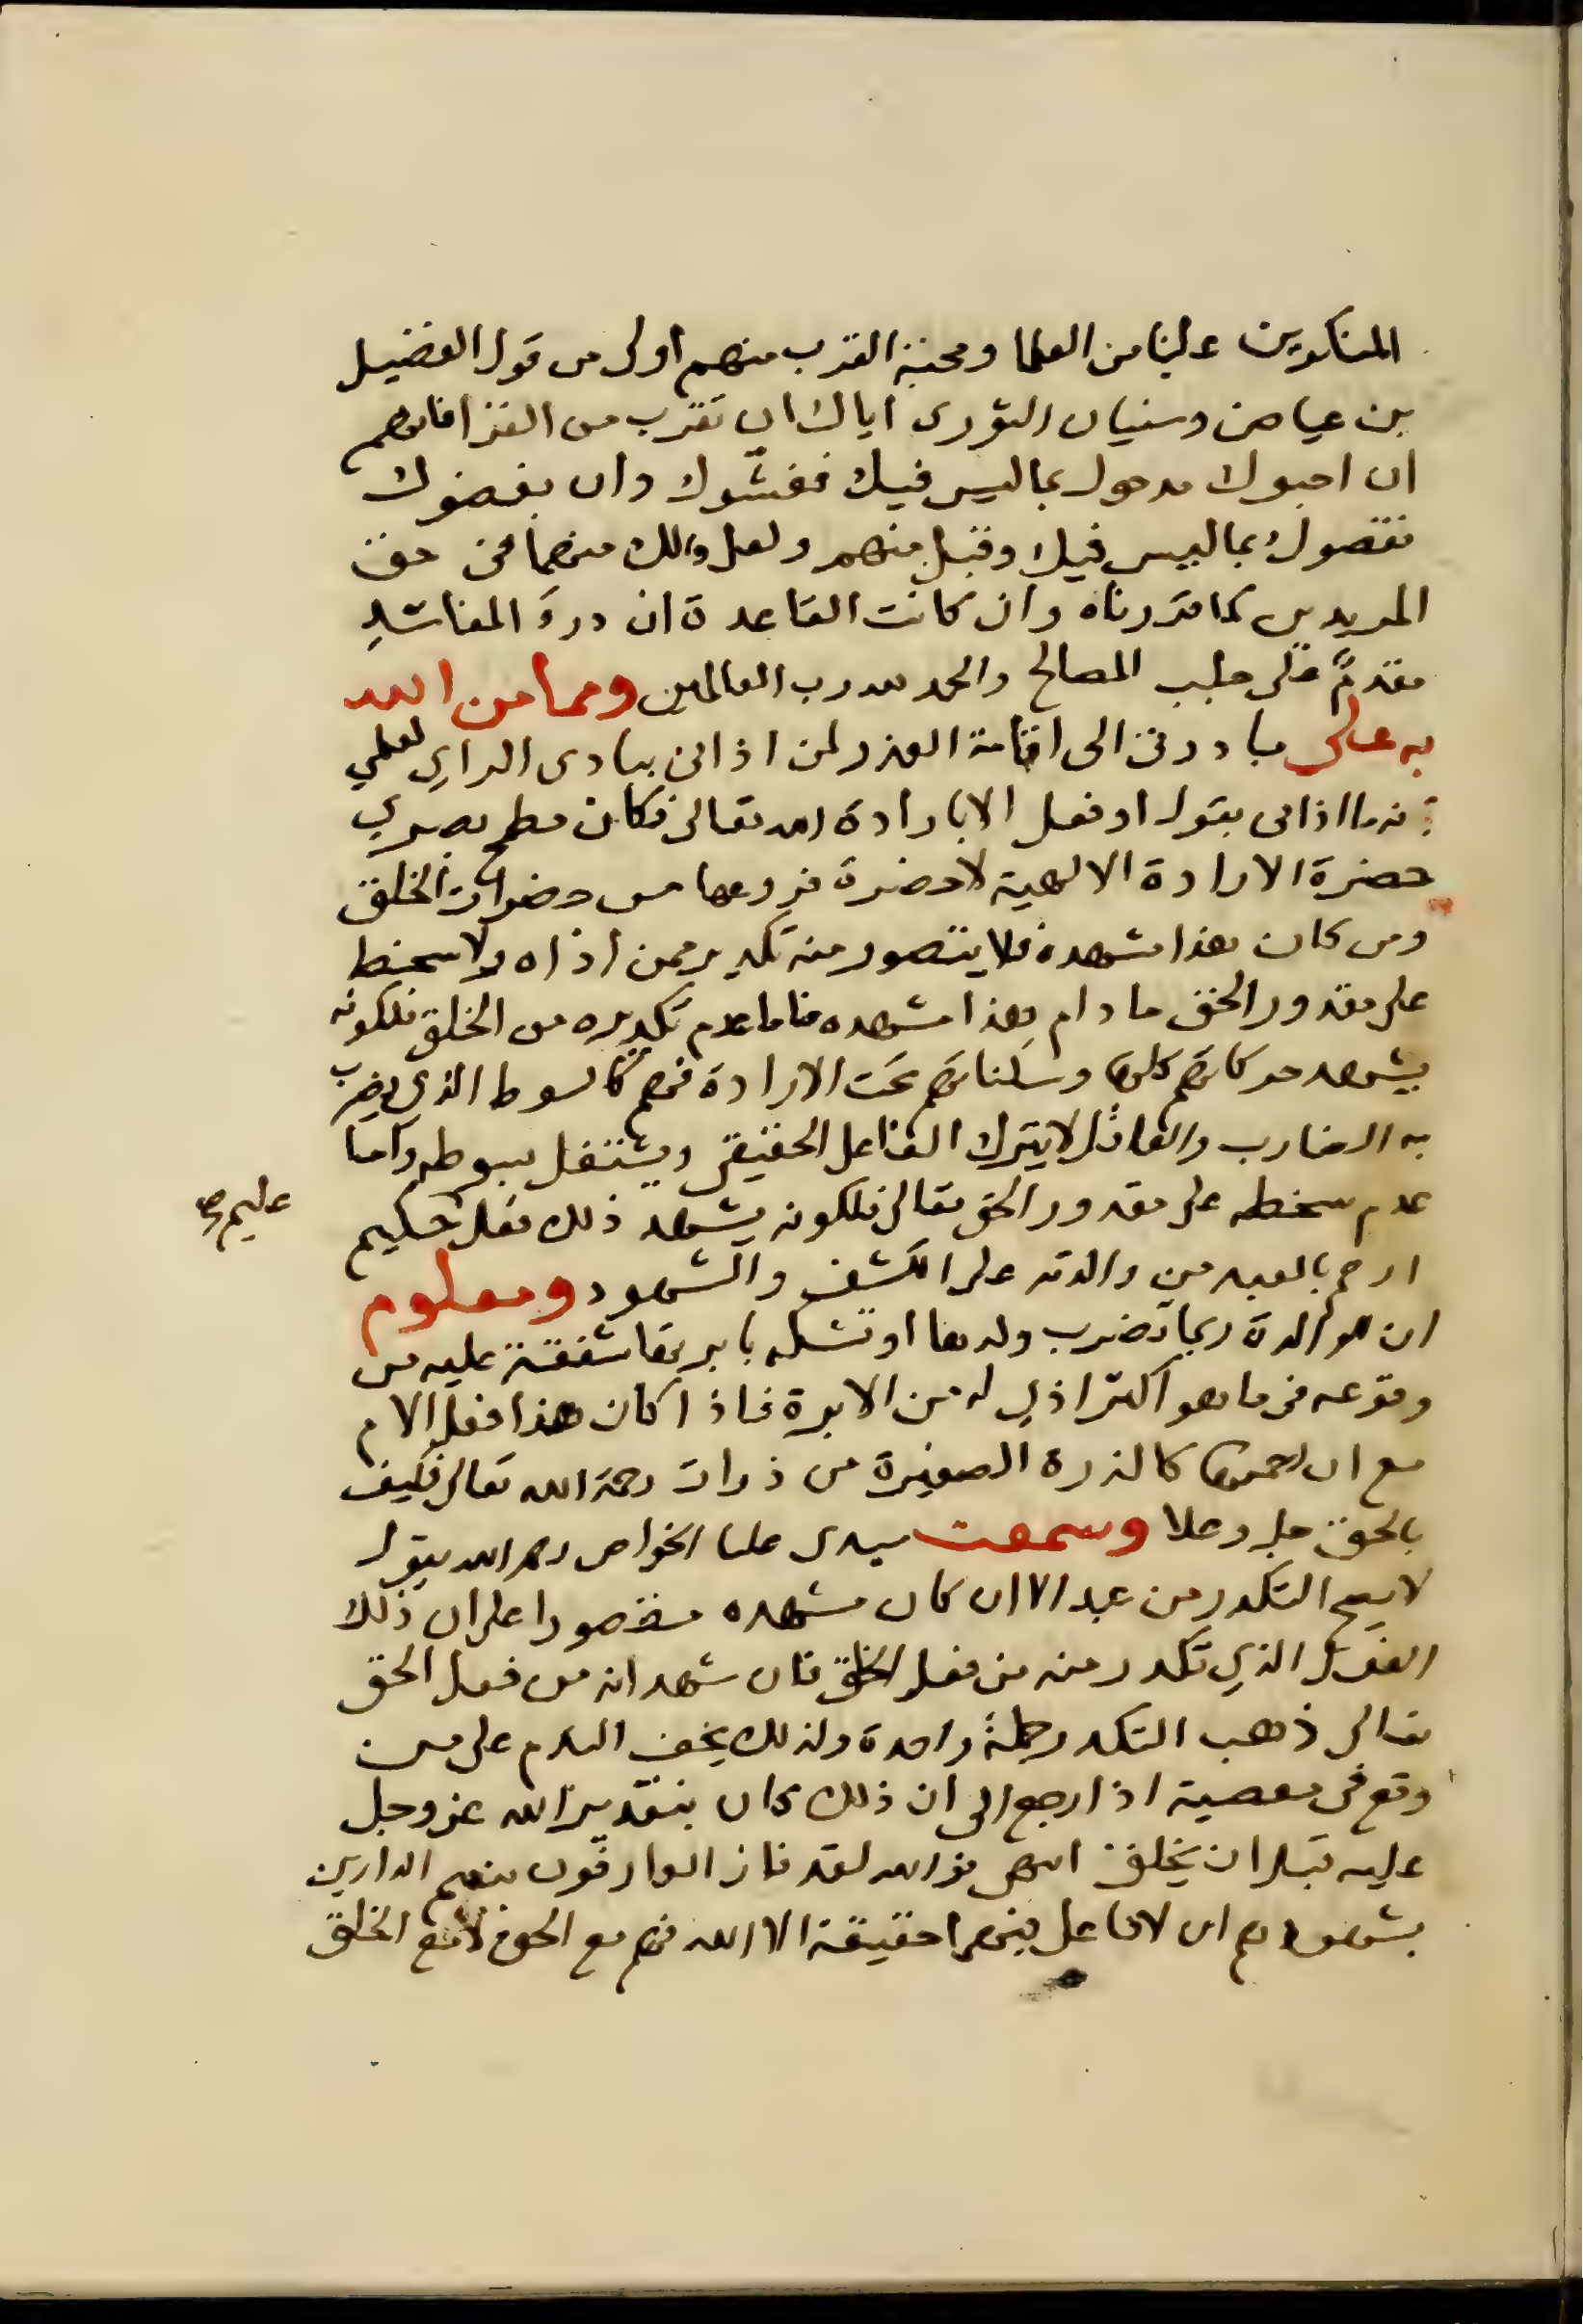 المنكرين علينا من العلما ومحبة القرب منهم اولى من قول الفضيل
بن عياض وسفيان الثورى اياك ان تقرب من القرا فانهم
ان احبوك مدحوك بما ليس فيك ففتنوك وان بغضوك
نقصوك بما ليس فيك وقبل منهم ولعل ذلك منهما فى حق
المريدين كما قررناه وان كانت القاعدة ان درء المفاسد
مقدم على جلب المصالح والحمد لله رب العالمين ومما من الله
به على مبادرتى الى اقامة العذر لمن اذانى ببادى الراي لعلمي
انه ما اذانى بقول او فعل الا بارادة الله تعالى فكان مطمح بصري
حضرة الارادة الالهية لا حضرة فروعها من حضرات الخلق
ومن كان هذا مشهده فلا يتصور منه تكدير ممن اذاه ولا سخط
على مقدور الحق ما دام هذا مشهده فاما عدم تكديره من الخلق فلكونه
يشهد حركاتهم كلها وسكناتهم تحت الارادة فهم كالسوط الذي يضرب
به الضارب والعاقل لا يترك الفاعل الحقيقى ويشتغل بسوطه واما
عدم سخطه على مقدور الحق تعالى فلكونه يشهد ذلك فعل حكيم
عليم صح
ارحم بالعبد من والدته على الكشف والشهود ومعلوم
ان الوالدة ربما تضرب ولدها او تشكه بابرتها شفقة عليه من
وقوعه فى ما هو اكثر اذى له من الابرة فاذا كان هذا فعل الام
مع ان رحمتها كالذرة الصغيرة من ذرات رحمة الله تعالى فكيف
بالحق جل وعلا وسمعت سيدى عليا الخواص رحمه الله يقول
لا يصح التكدر من عبد الا ان كان مشهده مقصورا على ان ذلك
الفعل الذي تكدر منه من فعل الخلق فان شهد انه من فعل الحق
تعالى ذهب التكدر جملة واحدة ولذلك يخف الندم على من
وقع فى معصية اذا رجع الى ان ذلك كان بتقدير الله عز وجل
عليه قبل ان يخلق انتهى فوالله لقد فاز العارفون بنعيم الدارين
بشهودهم ان لا فاعل بينهم حقيقة الا الله فهم مع الحق لا مع الخلق